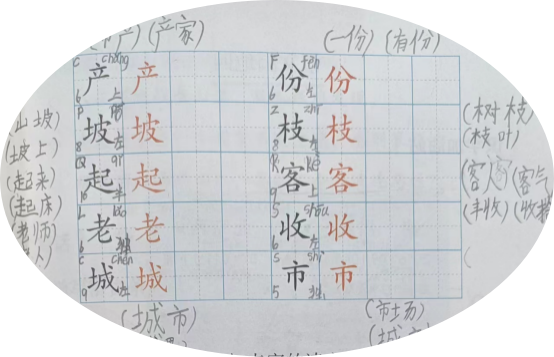 (产家) (一份) (有份)
C chǎng 产 产 6 上 F fèn 份 份 6 左
(山坡) P 坡 坡 8 左 Z zhī 枝 枝 8 左 (树枝)
(坡上) (枝叶)
(起来) Q qǐ 起 起 10 半 K kè 客 客 9 上 (客人) (客气)
(起床) (丰收)
(老师) L lǎo 老 老 6 独 S shōu 收 收 6 左
C chén 城 城 9 左 S shì 市 市 5 独
(城市) (市场)